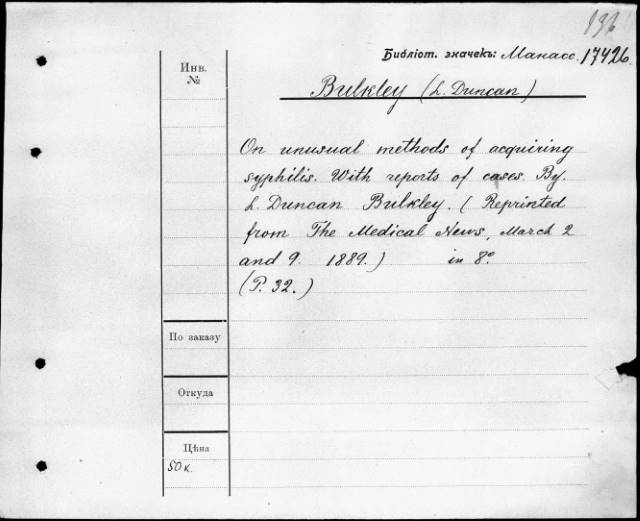 Библіот. значекъ: Манасс. 17426.
Инв.
№
Bulkley (L. Duncan)
On unusual methods of acquiring
syphilis. With reports of cases. By.
L. Duncan Bulkley. (Reprinted
from The Medical News, March 2
and 9. 1889.) in 8º
(P. 32.)
По заказу
Откуда
Цѣна
50 к.